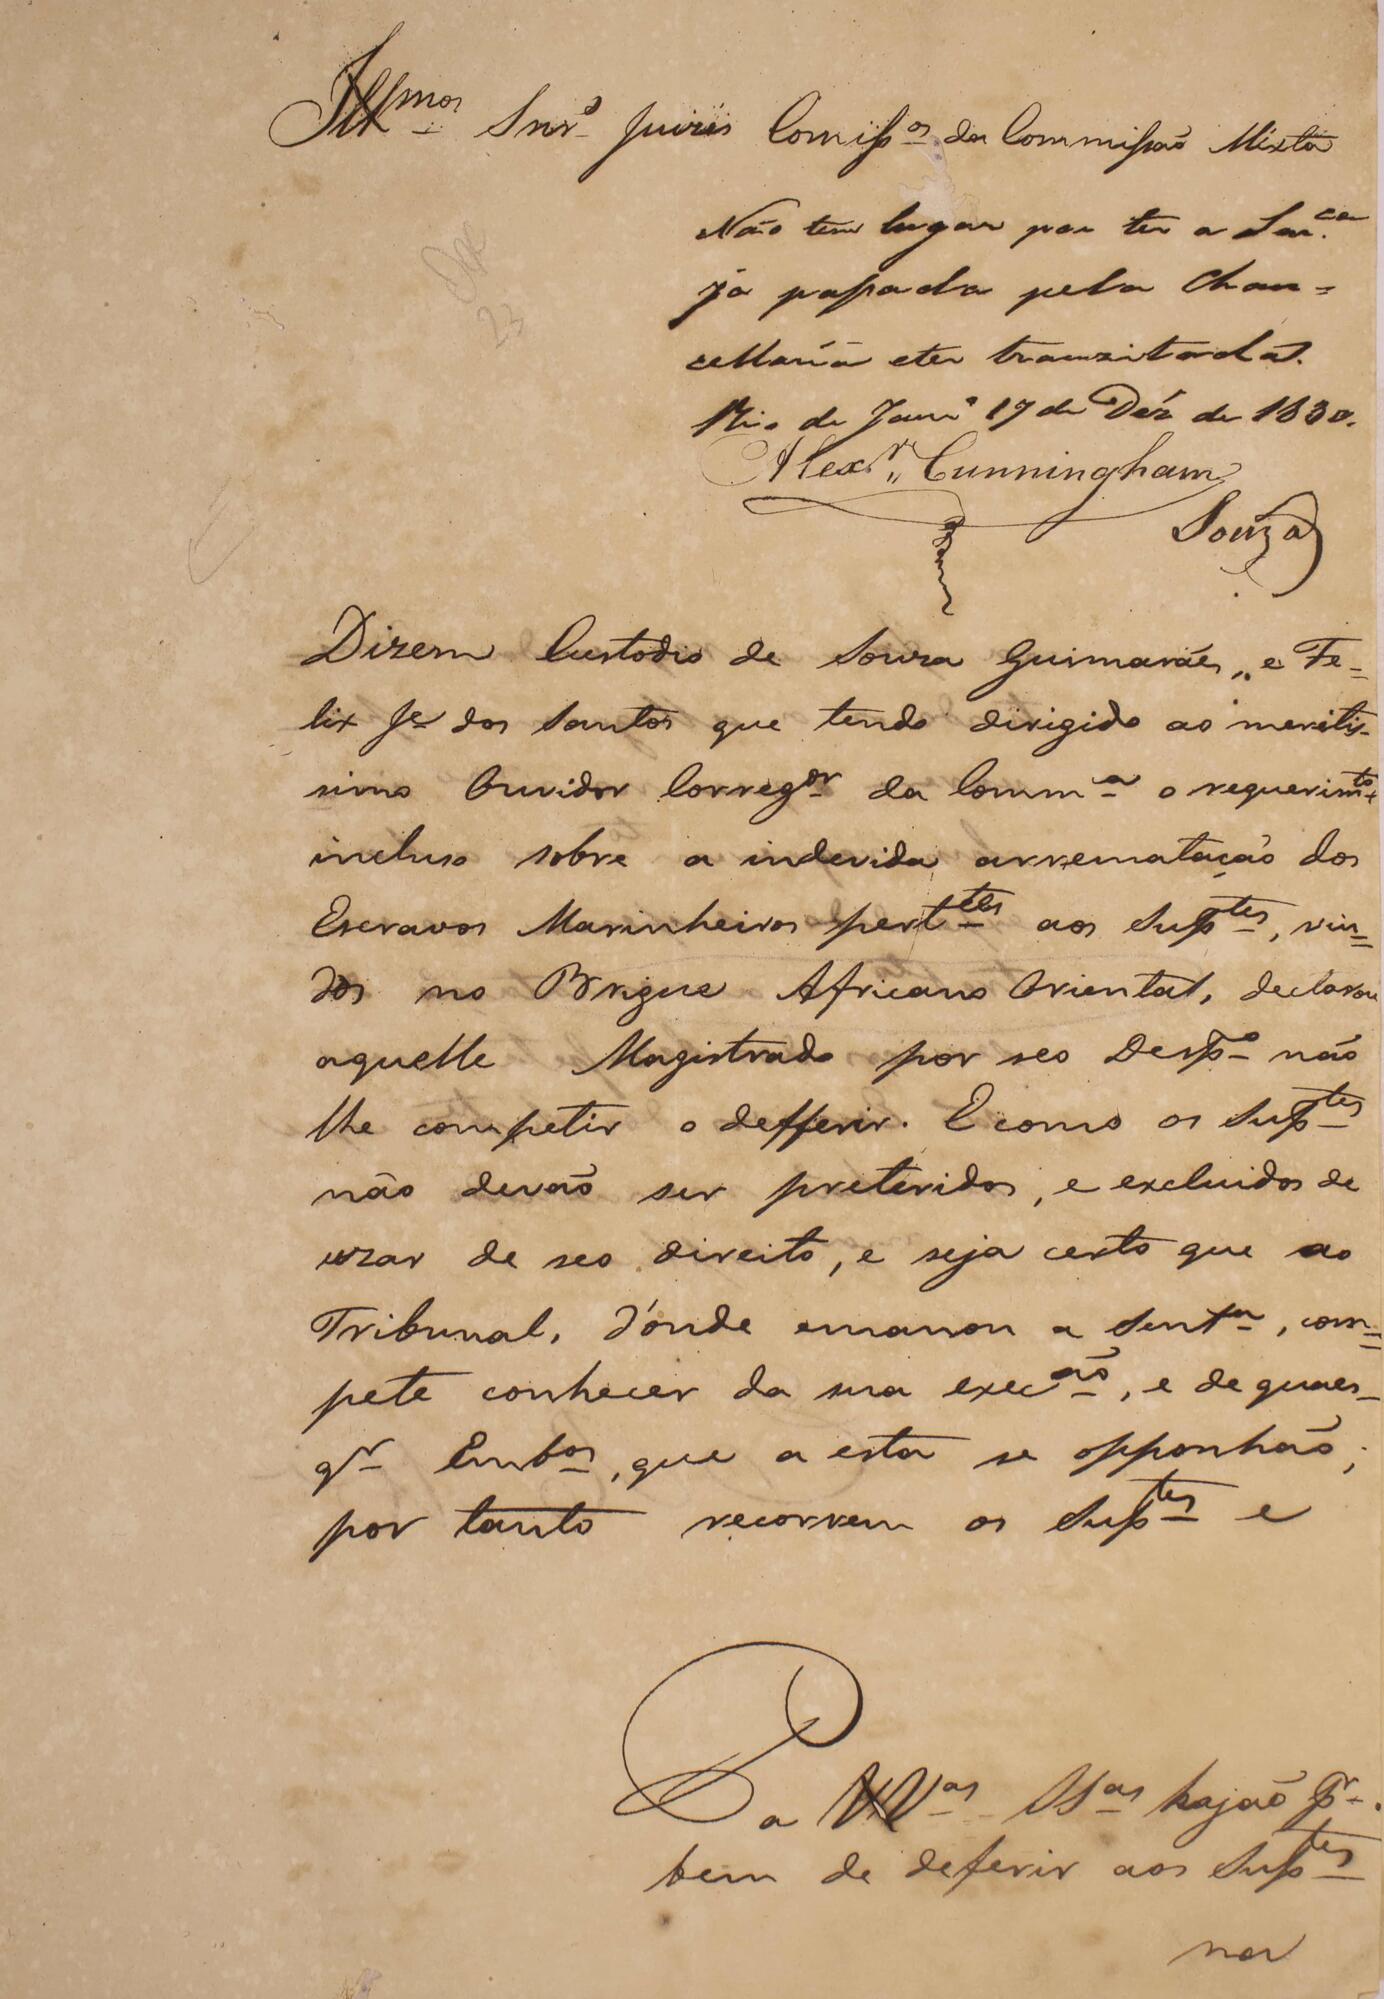 Illmos Snrs Juizes Comissos da Commissaõ Mixta
Naõ tem lugar por ter a Senca
ja passada pela Chan=
cellaria eter tranzitada.
Rio de Janro 17 de Dez de 1830.
Alexr. Cunningham
Souza
Dizem Custodio de Souza Guimarães, e Fe-
lix Je dos Santos que tendo dirigido ao meritis-
simo Ouvidor Corregor da Comma o requerimto
incluso sobre a indevida arremataçaõ dos
Escravos Marinheiros perttes aos Suptes, vin=
dos no Brigue Africano Oriental, declarou
aquelle Magistrado por seo Despo não
lhe competir o defferir. E como os Suptes
não devaõ ser preteridos, e excluidos de
uzar de seo direito, e seja certo que ao
Tribunal, d'onde emanou a Senta, com=
pete conhecer da sua execaõ, e de quaes-
qr Embos, que a esta se opponhaõ;
por tanto recorrem os Suptes e
Pa VVas Sas hajaõ pr
bem de deferir aos Suptes
na